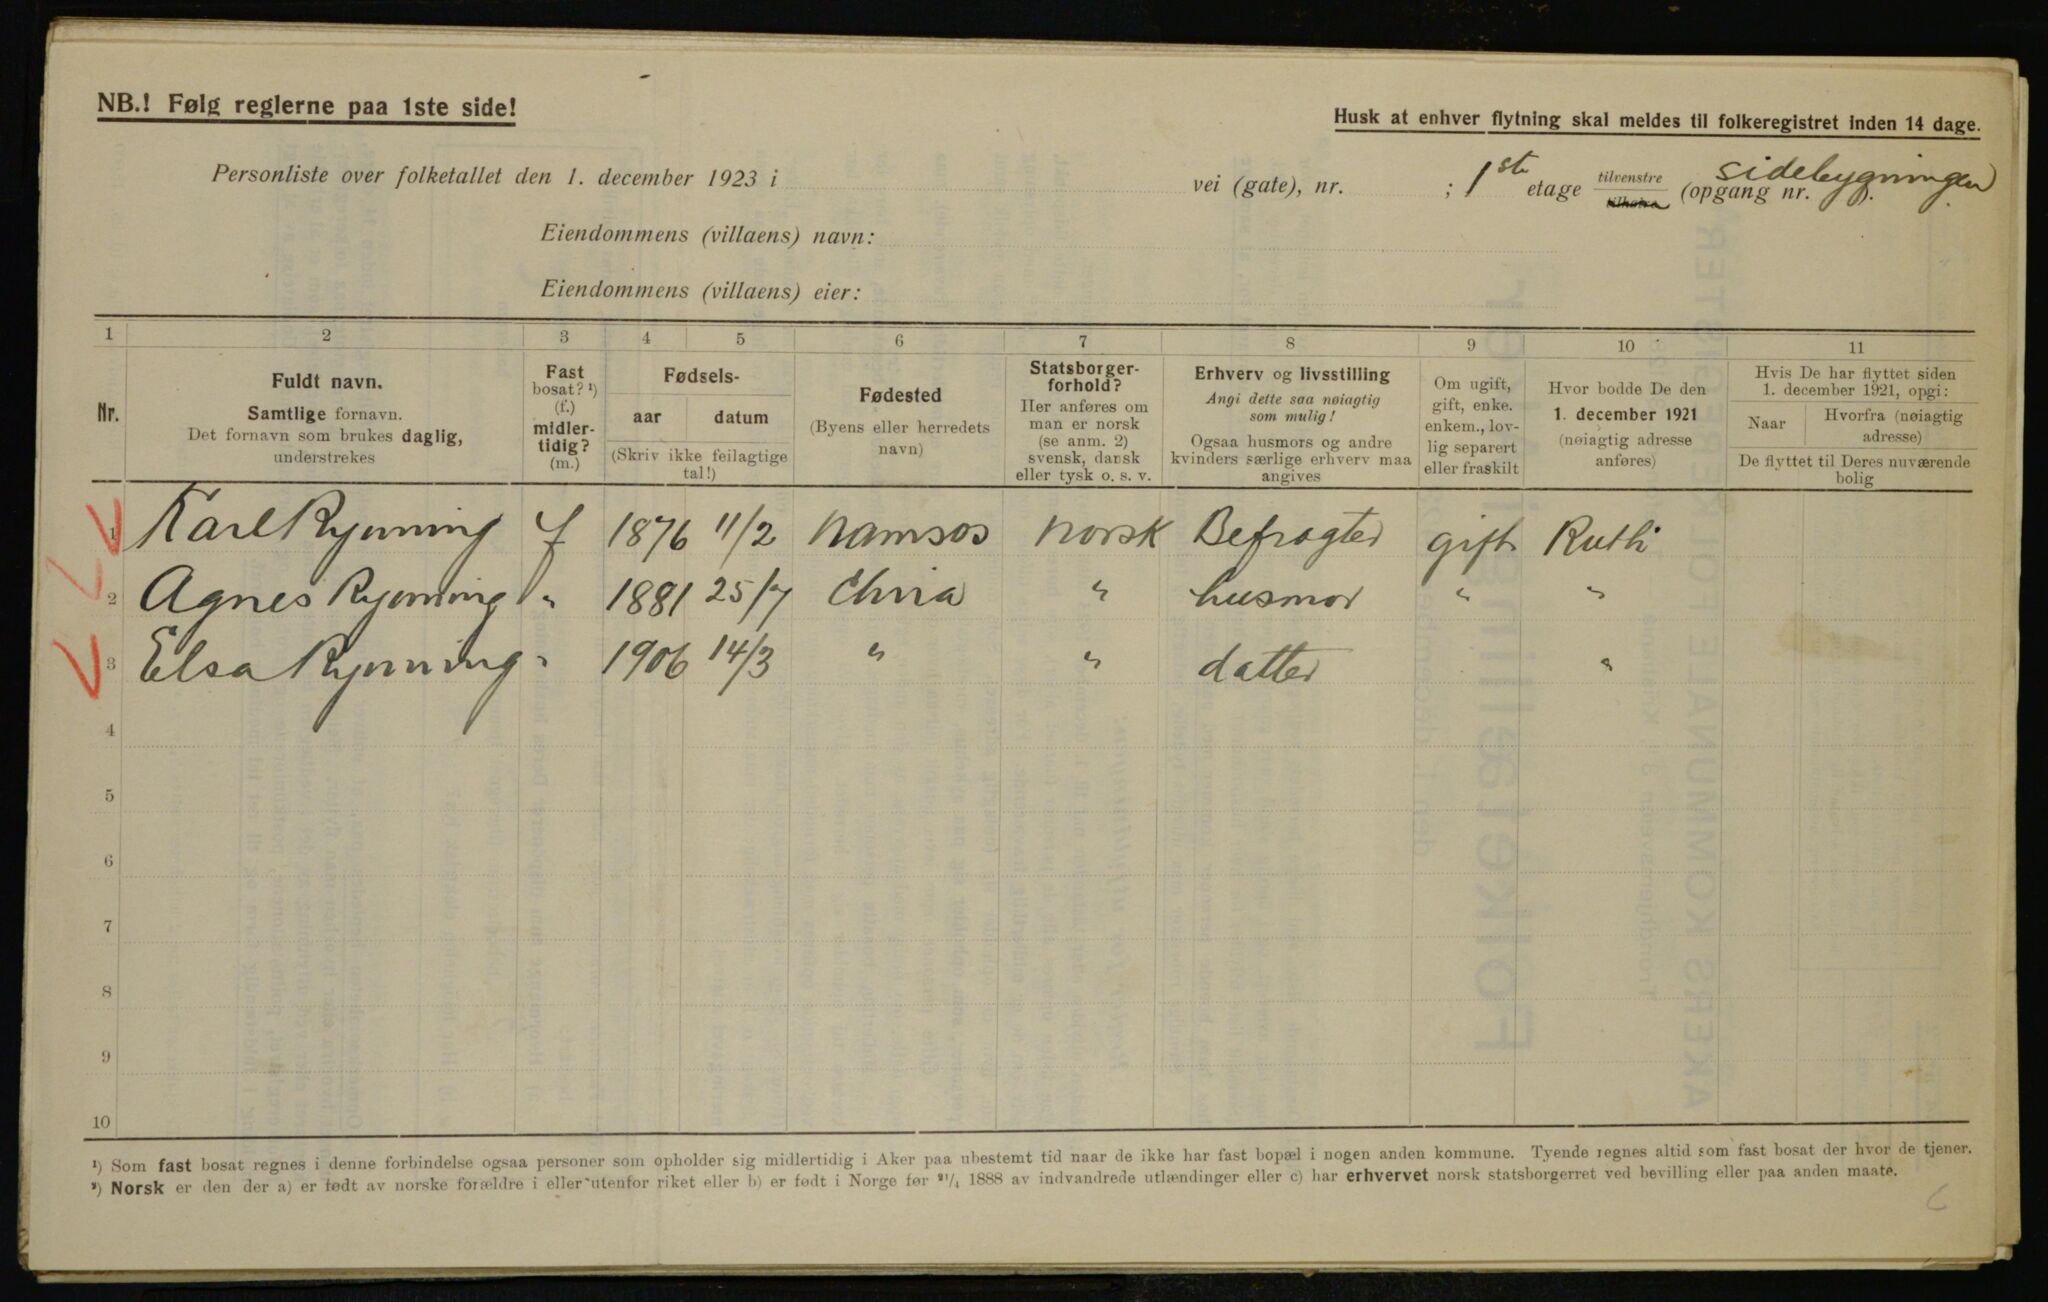 NB.! Følg reglerne paa 1ste side!
Husk at enhver flytning skal meldes til folkeregistret inden 14 dage.
Personliste over folketallet den 1. december 1923 i vei (gate), nr. ; 1ste etage tilvenstre tilhøire (opgang nr. sidebygningen ).
Eiendommens (villaens) navn:
Eiendommens (villaens) eier:
1 2 3 4 5 6 7 8 9 10 11
Nr.
Fuldt navn.
Samtlige fornavn.
Det fornavn som brukes daglig,
understrekes
Fast
bosat? ¹)
(f.)
midler-
tidig?
(m.)
Fødsels-
aar datum
(Skriv ikke feilagtige
tal!)
Fødested
(Byens eller herredets
navn)
Statsborger-
forhold?
Her anføres om
man er norsk
(se anm. 2)
svensk, dansk
eller tysk o. s. v.
Erhverv og livsstilling
Angi dette saa nøiagtig
som mulig!
Ogsaa husmors og andre
kvinders særlige erhverv maa
angives
Om ugift,
gift, enke.
enkem., lov-
lig separert
eller fraskilt
Hvor bodde De den
1. december 1921
(nøiagtig adresse
anføres)
Hvis De har flyttet siden
1. december 1921, opgi:
Naar
Hvorfra (nøiagtig
adresse)
De flyttet til Deres nuværende
bolig
1 Karl Rynning f 1876 11/2 Namsos norsk Befragter gift Ruthi
2 Agnes Rynning " 1881 25/7 Chria " husmor " "
3 Elsa Rynning " 1906 14/3 " " datter "
4
5
6
7
8
9
10
¹) Som fast bosat regnes i denne forbindelse ogsaa personer som opholder sig midlertidig i Aker paa ubestemt tid naar de ikke har fast bopæl i nogen anden kommune. Tyende regnes altid som fast bosat der hvor de tjener.
²) Norsk er den der a) er født av norske forældre i eller utenfor riket eller b) er født i Norge før ²¹/₄ 1888 av indvandrede utlændinger eller c) har erhvervet norsk statsborgerret ved bevilling eller paa anden maate.